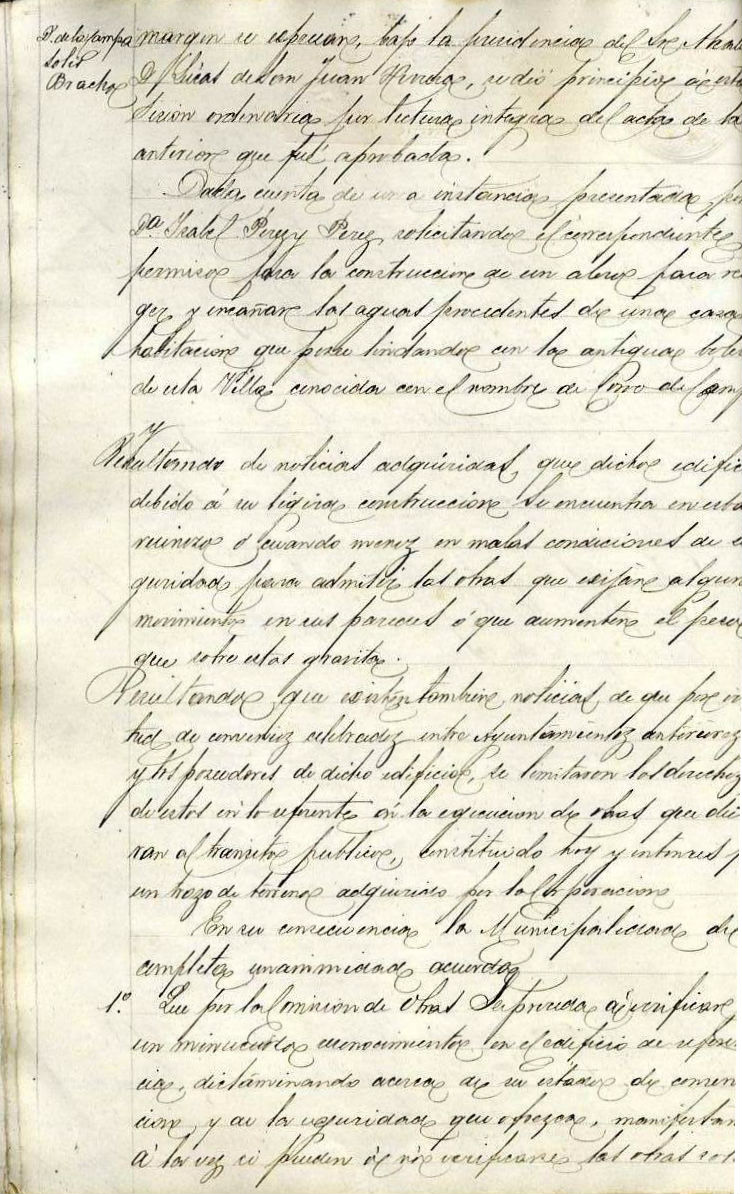 D. de la Pampa
Solis
Bracho
margen se espresan, bajo la presidencia del Sr. Alcal
D. Lucas de San Juan Rueda, se dió principio á esta
Sesion ordinaria por lectura integra del acta de la
anterior que fué aprobada.
Dada cuenta de una instancia presentada por
Dª Isabel Perez y Perez solicitando el correspondiente
permiso para la construccion de un alero para reco
ger y encañar las aguas procedentes de una casa
habitacion que posee lindando con las antiguas
de esta Villa conocida con el nombre de de
y
Resultando de noticias adquiridas, que dicho edific
debido á su ligera construccion se encuentra en esta
ruinoso ó cuando menos en malas condiciones de se
guridad para admitir las obras que exijan algun
movimiento en sus paredes ó que aumenten el peso
que sobre estas gravita.
Resultando que existen tambien noticias de que por vir
tud de convenios celebrados entre Ayuntamientos anteriores
y los poseedores de dicho edificio, se limitaron los derechos
de estos en lo referente á la egecucion de obras que die
ran al transito publico, constituido hoy y entonces p
un trozo de terreno adquirido por la Corporacion
En su consecuencia la Municipalidad de
completa unanimidad acuerda
1.º Que por la Comision de Obras Se proceda á verificar
un minucioso reconocimiento en el edificio de referen
cia, dictaminando acerca de su estado de conserva
cion y de la seguridad que ofrezca, manifestan
á la vez si pueden ó nó verificarse las obras